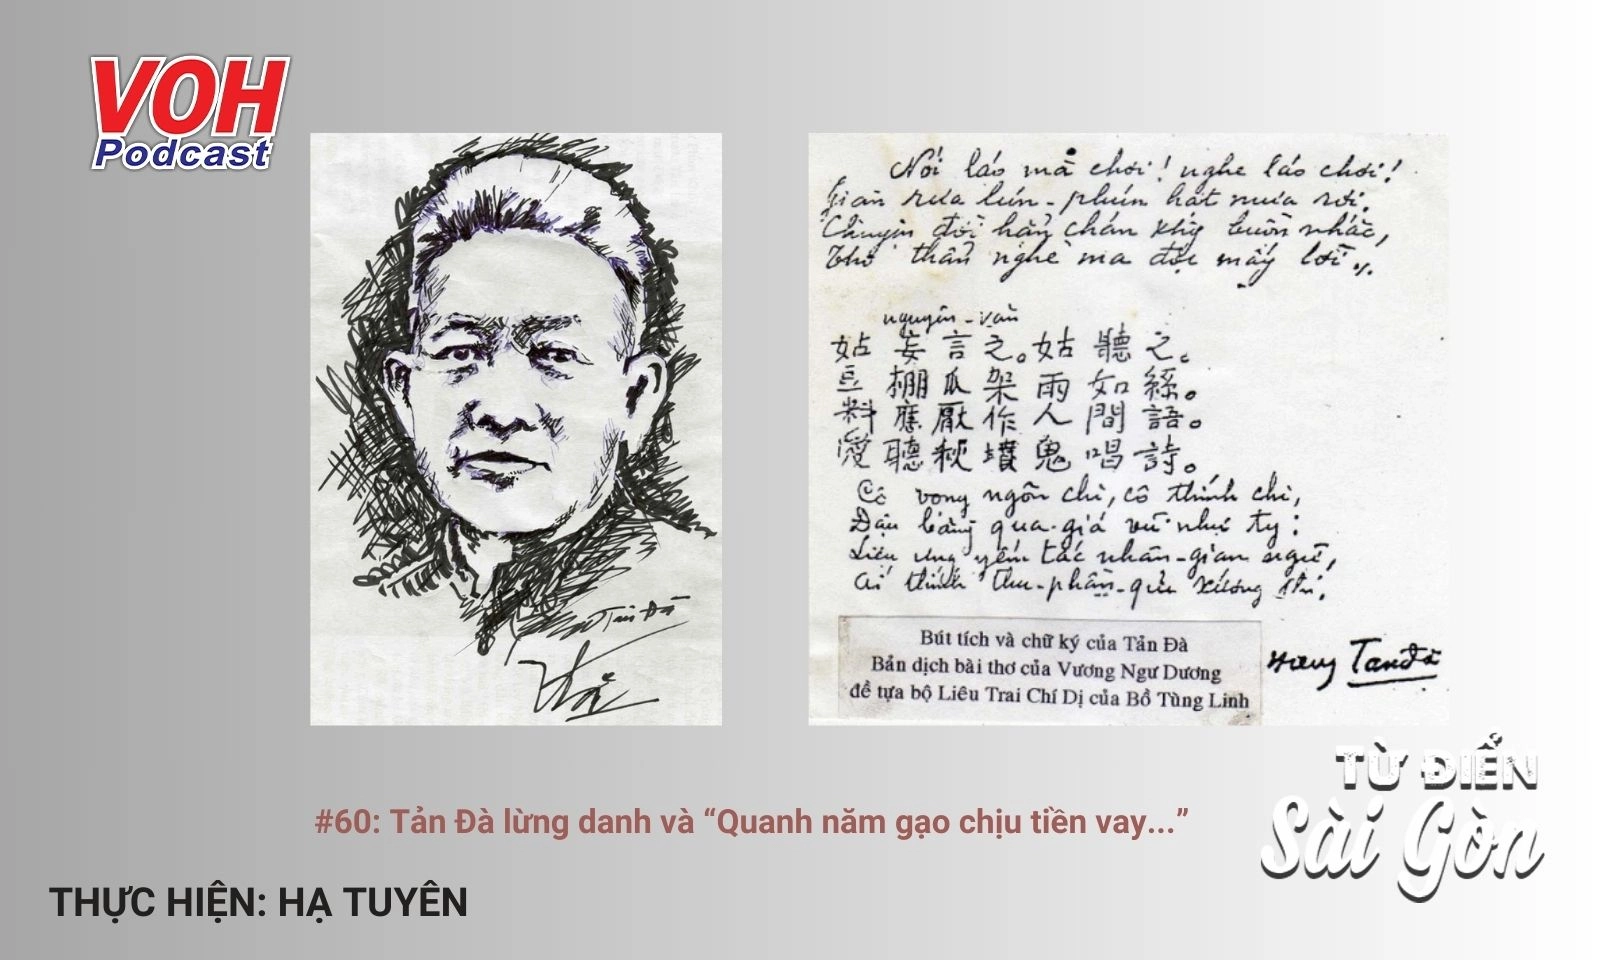 VOH
Podcast
Nói láo mà chơi! nghe láo chơi!
Giàn dưa lún-phún hạt mưa rơi,
Chuyện đời hẳn chán khg buồn nhắc,
Thơ thẩn nghe ma đọc mấy lời.
nguyên-văn
姑妄言之。姑聽之。
豆棚瓜架雨如絲。
料應厭作人間語。
愛聽秋墳鬼唱詩。
Cô vong ngôn chi, cô thính chi,
Đậu bằng qua-giá vũ như ty;
Liệu ưng yếm tác nhân-gian ngữ,
Ái thính thu-phần-quỉ xướng thi.
Tản Đà
Bút tích và chữ ký của Tản Đà
Bản dịch bài thơ của Vương Ngư Dương
đề tựa bộ Liêu Trai Chí Dị của Bồ Tùng Linh
Tản Đà
#60: Tản Đà lừng danh và “Quanh năm gạo chịu tiền vay...”
TỪ ĐIỂN
Sài Gòn
THỰC HIỆN: HẠ TUYÊN